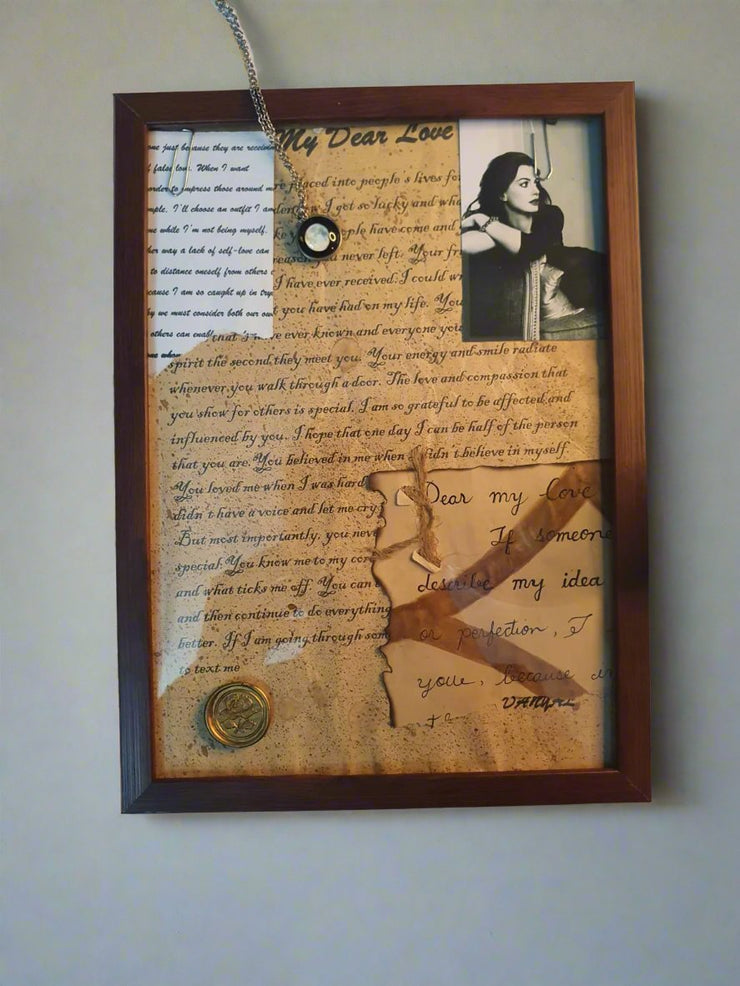 My Dear Love
one just because they are receiving
false love. When I want
order to impress those around me
mple. I'll choose an outfit I am
me while I'm not being myself.
her way a lack of self-love can
to distance oneself from others
cause I am so caught up in try
by we must consider both our own
others can enable
one whom
placed into people's lives for
I got so lucky and wha
ple have come and
reason you never left. Your fr
I have ever received. I could wr
t you have had on my life. You
that I have ever known and everyone your
spirit the second they meet you. Your energy and smile radiate
whenever you walk through a door. The love and compassion that
you show for others is special. I am so grateful to be affected and
influenced by you. I hope that one day I can be half of the person
that you are. You believed in me when I didn't believe in myself.
You loved me when I was hard
didn't have a voice and let me cry
But most importantly, you neve
special. You know me to my cor
and what ticks me off. You can
and then continue to do everything
better. If I am going through som
to text me
Dear my Love
If someone
describe my idea
or perfection, I
you, because